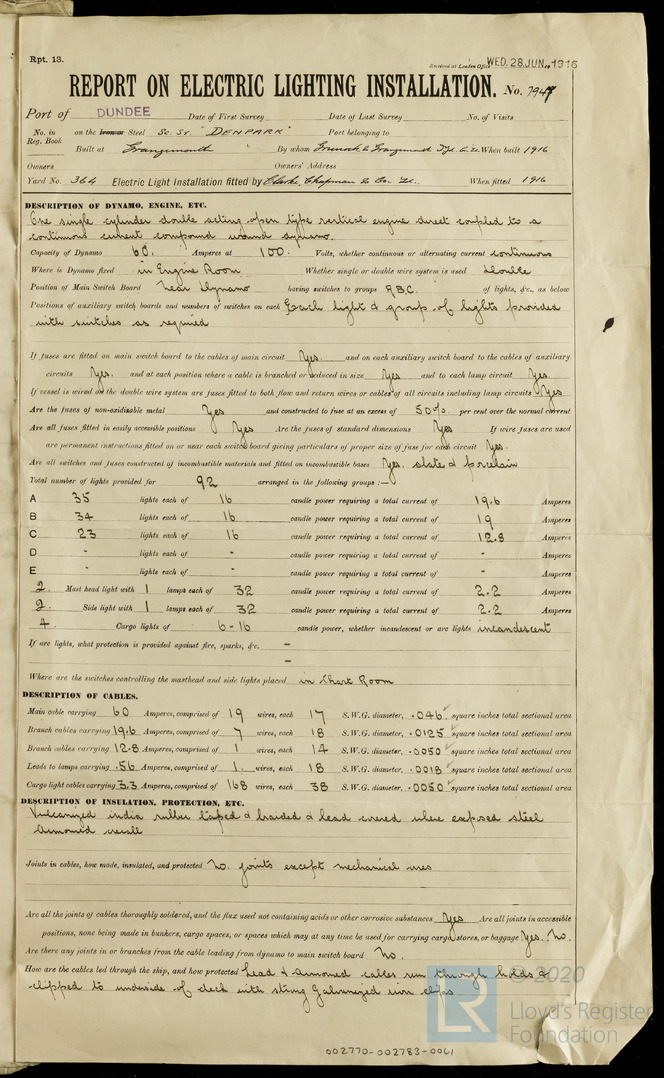 Rpt. 13.
Received at London Office WED. 28. JUN. 1916
REPORT ON ELECTRIC LIGHTING INSTALLATION. No. 7947
Port of DUNDEE Date of First Survey Date of Last Survey No. of Visits
No. in Reg. Book on the Iron or Steel Sc. Sr. "DENPARK" Port belonging to
Built at Grangemouth By whom Greenock & Grangemouth Dyd. Co. Ld. When built 1916
Owners Owners' Address
Yard No. 364 Electric Light Installation fitted by Clarke Chapman & Co. Ld. When fitted 1916
DESCRIPTION OF DYNAMO, ENGINE, ETC.
One single cylinder double acting open type vertical engine direct coupled to a
continuous current compound wound dynamo.
Capacity of Dynamo 60. Amperes at 100. Volts, whether continuous or alternating current continuous
Where is Dynamo fixed in Engine Room Whether single or double wire system is used Double
Position of Main Switch Board Near Dynamo having switches to groups A B C. of lights, &c., as below
Positions of auxiliary switch boards and numbers of switches on each Each light & group of lights provided
with switches as required
If fuses are fitted on main switch board to the cables of main circuit Yes. and on each auxiliary switch board to the cables of auxiliary
circuits Yes. and at each position where a cable is branched or reduced in size Yes and to each lamp circuit Yes.
If vessel is wired on the double wire system are fuses fitted to both flow and return wires or cables of all circuits including lamp circuits Yes
Are the fuses of non-oxidizable metal Yes and constructed to fuse at an excess of 50%. per cent over the normal current
Are all fuses fitted in easily accessible positions Yes Are the fuses of standard dimensions Yes If wire fuses are used
are permanent instructions fitted on or near each switch board giving particulars of proper size of fuse for each circuit Yes.
Are all switches and fuses constructed of incombustible materials and fitted on incombustible bases Yes. slate & porcelain
Total number of lights provided for 92 arranged in the following groups :—
A 35 lights each of 16 candle power requiring a total current of 19.6 Amperes
B 34 lights each of 16 candle power requiring a total current of 19 Amperes
C 23 lights each of 16 candle power requiring a total current of 12.8 Amperes
D - lights each of - candle power requiring a total current of - Amperes
E - lights each of - candle power requiring a total current of - Amperes
2. Mast head light with 1 lamps each of 32 candle power requiring a total current of 2.2 Amperes
2. Side light with 1 lamps each of 32 candle power requiring a total current of 2.2 Amperes
4. Cargo lights of 6-16 candle power, whether incandescent or arc lights incandescent
If arc lights, what protection is provided against fire, sparks, &c. -
-
Where are the switches controlling the masthead and side lights placed in Chart Room
DESCRIPTION OF CABLES.
Main cable carrying 60 Amperes, comprised of 19 wires, each 17 S.W.G. diameter, .046 square inches total sectional area
Branch cables carrying 19.6 Amperes, comprised of 7 wires, each 18 S.W.G. diameter, .0125 square inches total sectional area
Branch cables carrying 12.8 Amperes, comprised of 1 wires, each 14 S.W.G. diameter, .0050 square inches total sectional area
Leads to lamps carrying .56 Amperes, comprised of 1. wires, each 18 S.W.G. diameter, .0018 square inches total sectional area
Cargo light cables carrying 3.3 Amperes, comprised of 168 wires, each 38 S.W.G. diameter, .0050 square inches total sectional area
DESCRIPTION OF INSULATION, PROTECTION, ETC.
Vulcanized india rubber taped & braided & lead covered where exposed steel
armoured overall
Joints in cables, how made, insulated, and protected No. joints except mechanical ones
Are all the joints of cables thoroughly soldered, and the flux used not containing acids or other corrosive substances Yes Are all joints in accessible
positions, none being made in bunkers, cargo spaces, or spaces which may at any time be used for carrying cargo, stores, or baggage Yes. No.
Are there any joints in or branches from the cable leading from dynamo to main switch board No.
How are the cables led through the ship, and how protected Lead & armoured cables run through holds &
clipped to underside of deck with strong Galvanized iron clips
© 2020
LR
Lloyd's Register
Foundation
002770-002783-0061